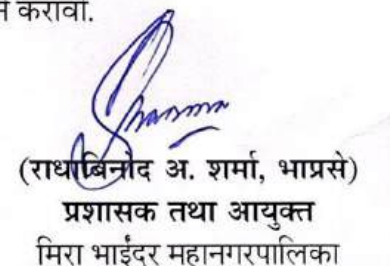 न करावी.
Sharma
(राधाबिनोद अ. शर्मा, भाप्रसे)
प्रशासक तथा आयुक्त
मिरा भाईंदर महानगरपालिका